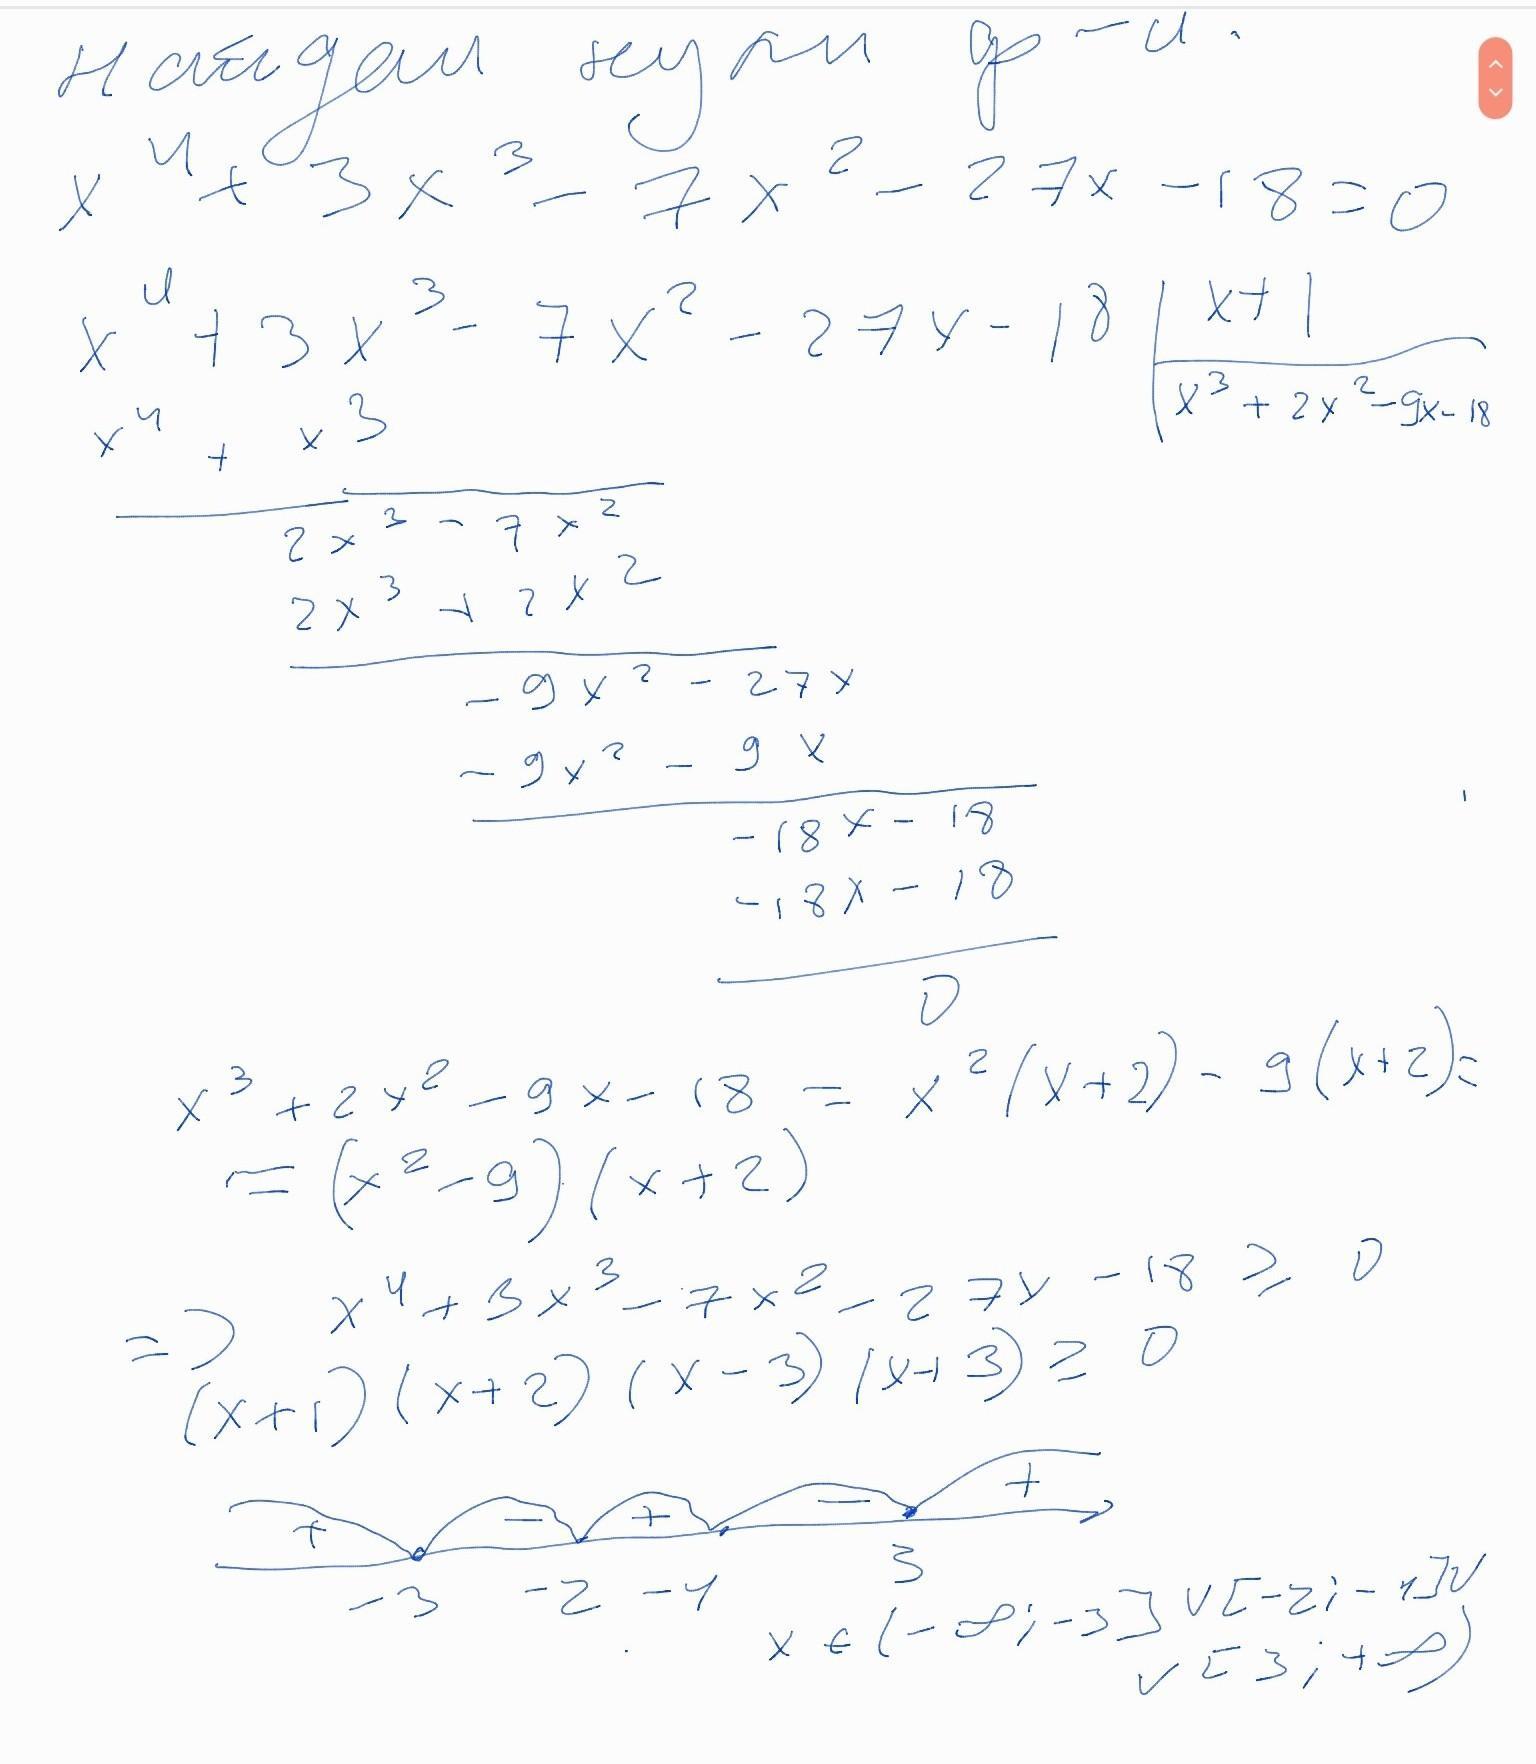 Найдем нули ф-и.
x⁴ + 3x³ - 7x² - 27x - 18 = 0
x⁴ + 3x³ - 7x² - 27x - 18 | x+1
x⁴ + x³
x³ + 2x² - 9x - 18
2x³ - 7x²
2x³ + 2x²
-9x² - 27x
-9x² - 9x
-18x - 18
-18x - 18
0
x³ + 2x² - 9x - 18 = x²(x+2) - 9(x+2) =
= (x² - 9)(x+2)
=> x⁴ + 3x³ - 7x² - 27x - 18 ≥ 0
(x+1)(x+2)(x-3)(x+3) ≥ 0
+ - + - +
-3 -2 -1 3
x ∈ (-∞; -3] ∪ [-2; -1] ∪
∪ [3; +∞)